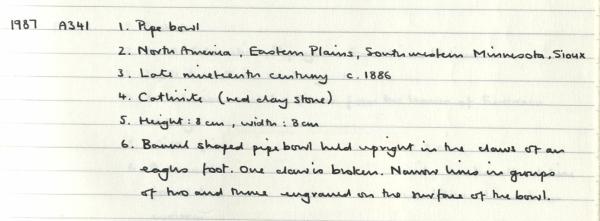 1987 A341 1. Pipe bowl
2. North America, Eastern Plains, Southwestern Minnesota, Sioux
3. Late nineteenth century c. 1886
4. Catlinite (red clay stone)
5. Height: 8 cm, width: 3cm
6. Barrel shaped pipe bowl held upright in the claws of an
eagles foot. One claw is broken. Narrow lines in groups
of two and three engraved on the surface of the bowl.